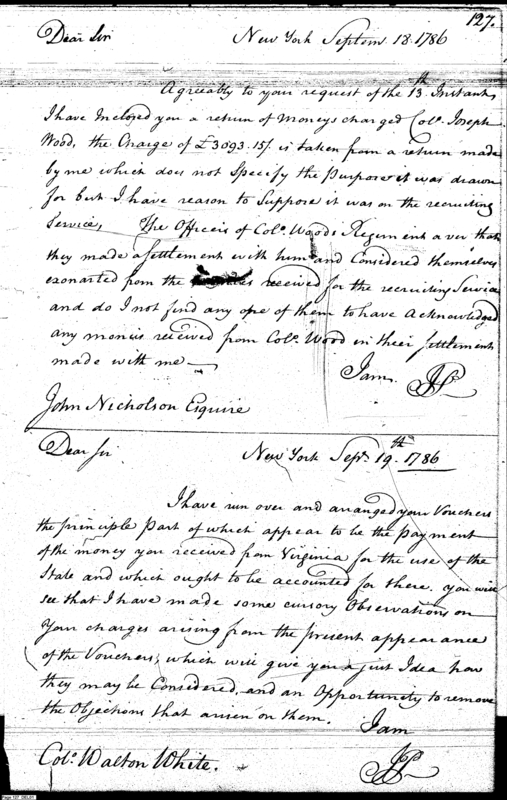 127.
Dear Sir New York Septem 18. 1786
Agreeably to your request of the 13th Instant,
I have Inclosed you a return of Moneys charged Colo. Joseph
Wood, the Charge of £3093.15/. is taken from a return made
by me which does not Specify the Purpose it was drawn
for but I have reason to Suppose it was on the recruiting
Service, The Officers of Colo. Woods Regiment aver that
they made a Settlement with him and Considered themselves
exonarted from the received for the recruiting Service
and do I not find any one of them to have Acknowledged
any monies received from Colo. Wood in their Settlement
made with me —
I am, JP
John Nicholson Esquire
Dear Sir New York Sept. 19th 1786
I have run over and arranged your Vouchers
the principle Part of which appear to be the Payment
of the money you received from Virginia for the use of the
State and which ought to be accounted for there. you will
see that I have made some cursory Observations on
Your charges arising from the present appearance
of the Vouchers, which will give you a just Idea how
they may be Considered, and an Opportunity to remove
the Objections that arisen on them.
I am
JP
Colo. Walton White.